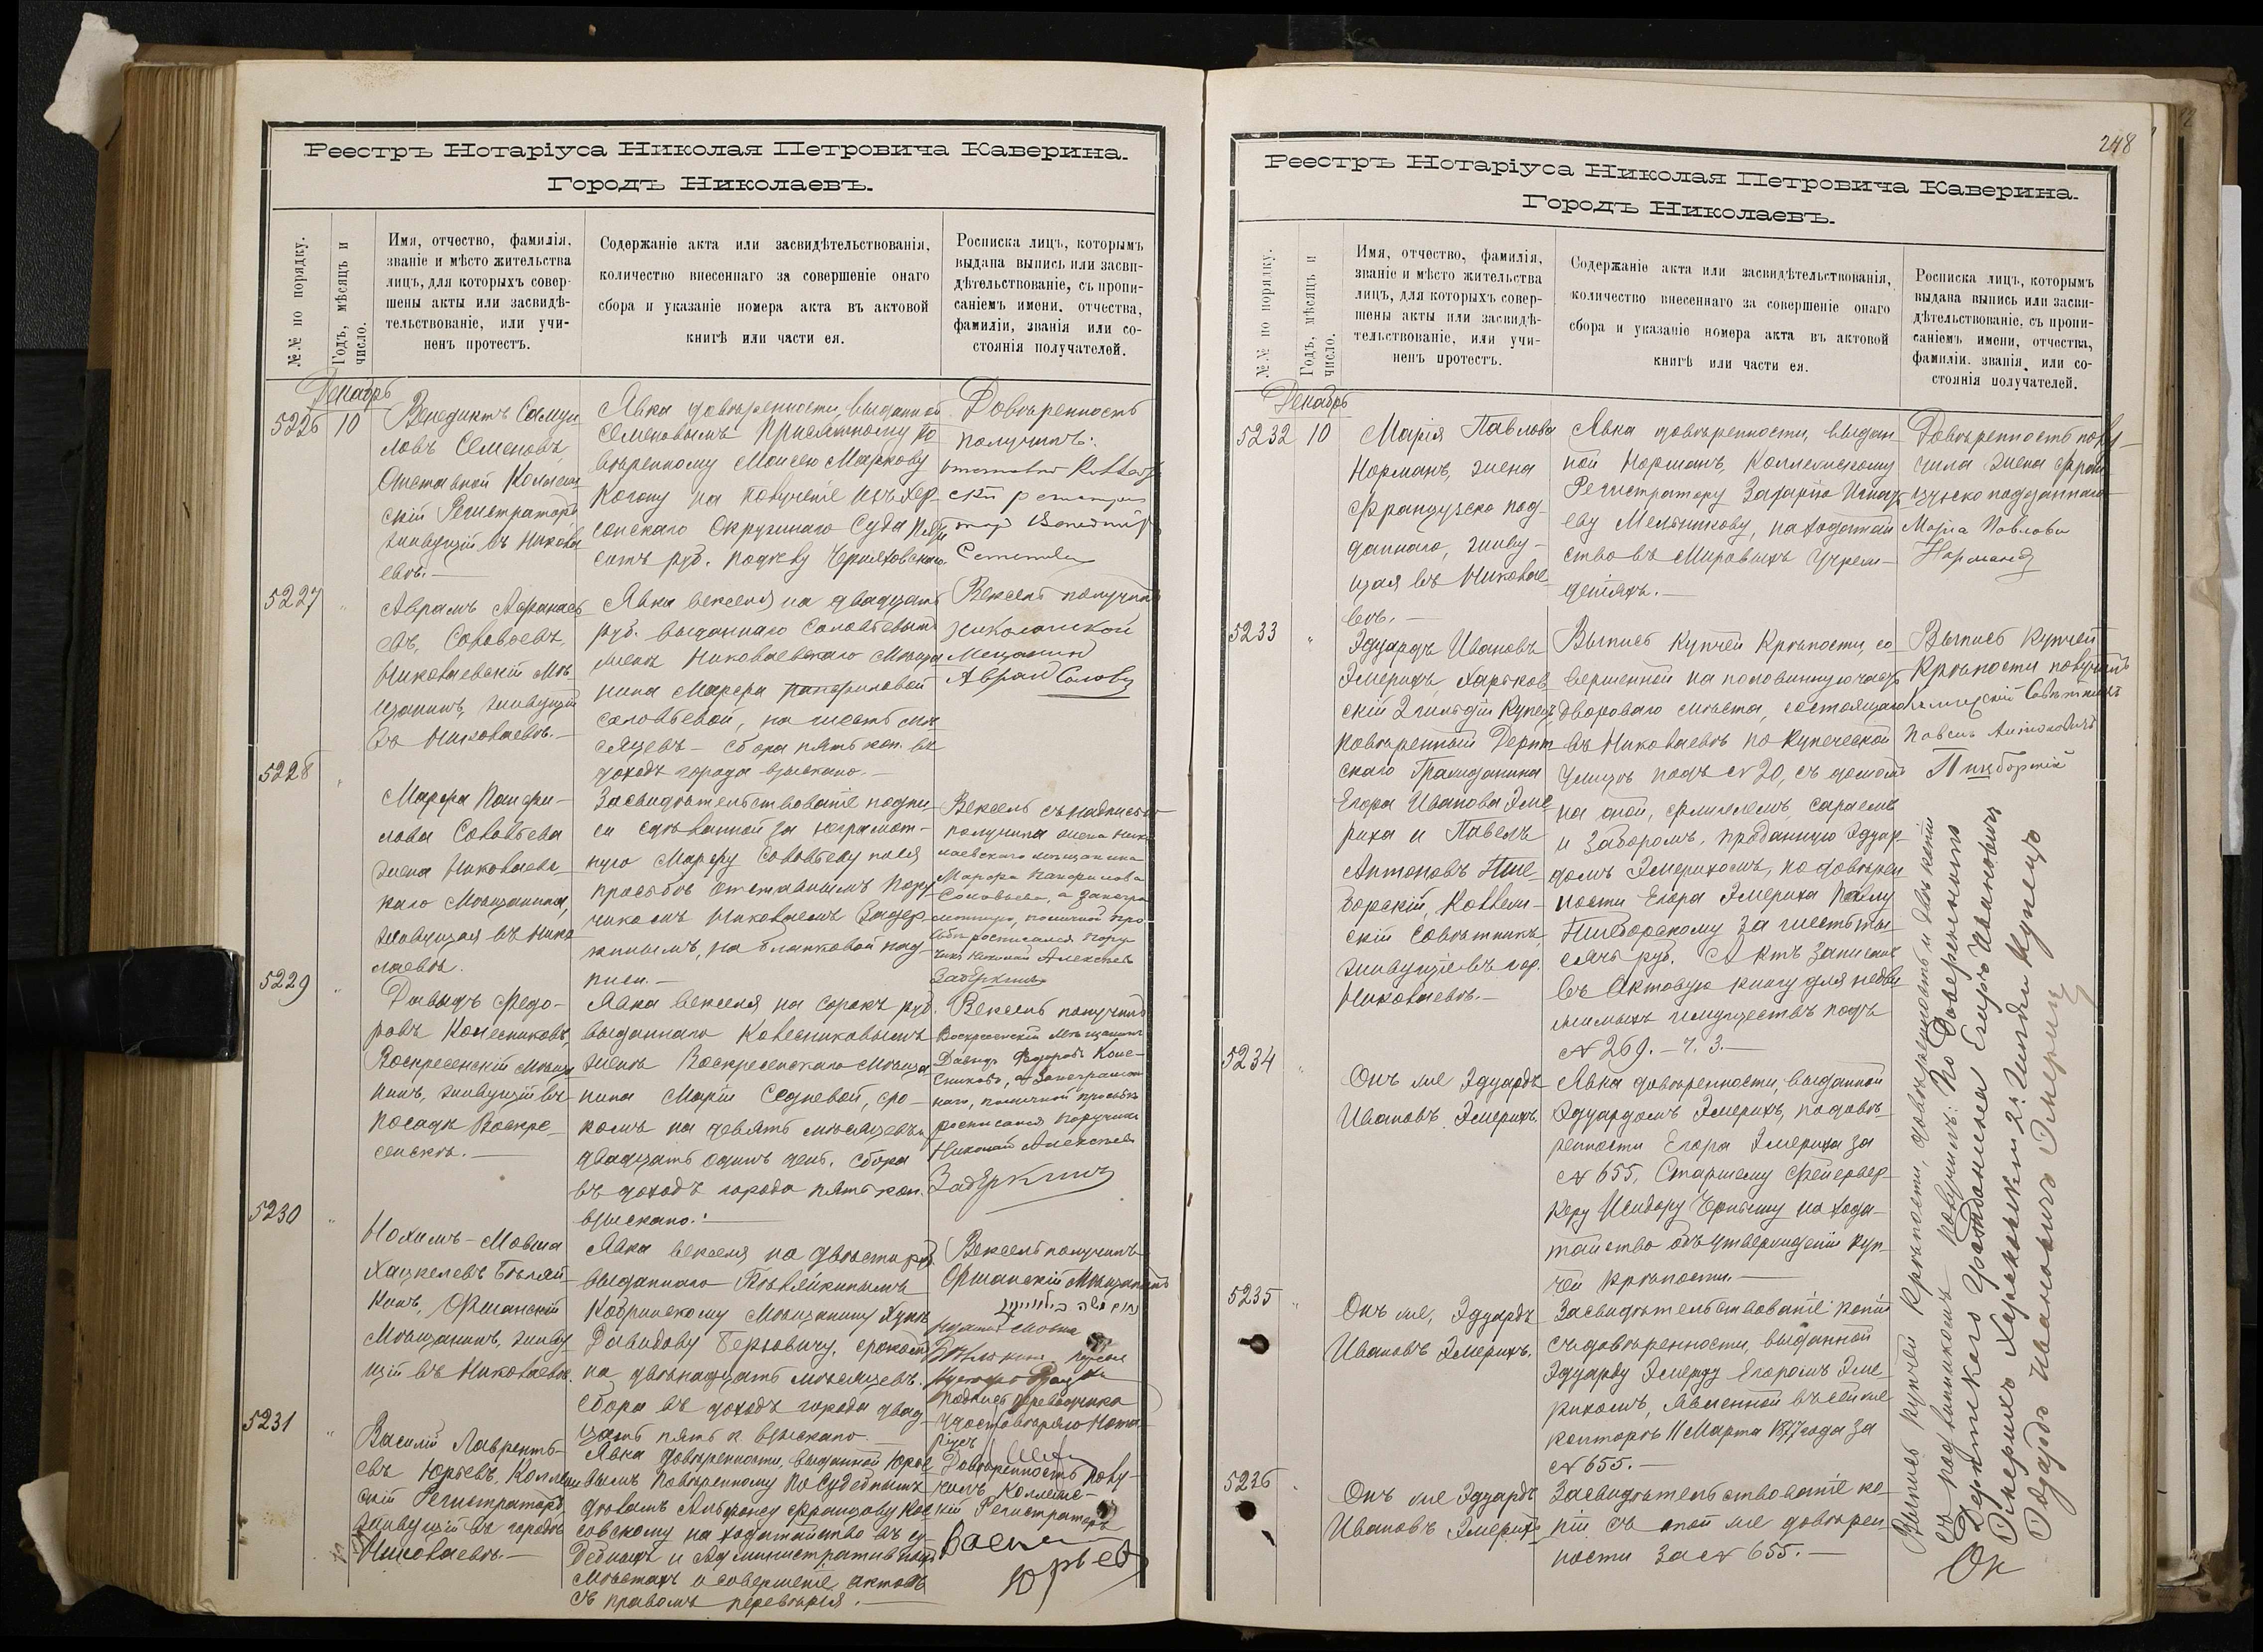 Реестръ Нотаріуса Николая Петровича Каверина.
Городъ Николаевъ.
№.№ по порядку.
Годъ, мѣсяцъ и
число.
Имя, отчество, фамилія,
званіе и мѣсто жительства
лицъ, для которыхъ совер-
шены акты или засвидѣ-
тельствованіе, или учи-
ненъ протестъ.
Содержаніе акта или засвидѣтельствованія,
количество внесеннаго за совершеніе онаго
сбора и указаніе номера акта въ актовой
книгѣ или части ея.
Росписка лицъ, которымъ
выдана выпись или засви-
дѣтельствованіе, съ пропи-
саніемъ имени, отчества,
фамиліи, званія или со-
стоянія получателей.
Декабрь
5226 10
Венедиктъ Самуи
ловъ Семеновъ,
Отставной Коллеж
скій Регистраторъ,
живущій въ Никола
евѣ.
Явка довѣренности, выданной
Семеновымъ Присяжному По
вѣренному Моисею Маркову
Когону на полученіе изъ Хер-
сонскаго Окружнаго Суда
сотъ руб. по дѣлу Черняховскаго.
Довѣренность
получилъ:
5227 "
Абрамъ Афанась
евъ Соловьевъ,
Николаевскій Мѣ
щанинъ, живущій
въ Николаевѣ.
Явка векселя на двадцать
руб. выданнаго Соловьевымъ
женѣ Николаевскаго Мѣща
нина Марфѣ Панфиловой
Соловьевой, на шесть мѣ
сяцевъ – сбора пять коп. въ
доходъ города взыскано.
Вексель получилъ
Николаевской
Мещанин
5228 "
Марфа Панфи-
лова Соловьева
жена Николаевс-
каго Мѣщанина,
живущая въ Нико
лаевѣ.
Засвидѣтельствованіе подпи
си сдѣланной за неграмот-
ную Марфу Соловьеву по ея
просьбѣ отставнымъ Пору
чикомъ Николаемъ Задер
кинымъ, на бланковой над
писи.
Вексель съ надписью
получила жена Нико
лаевского мѣщанина
Марфа Панфилова
Соловьева, а за негра
мотную, по личной про
сьбѣ росписался пору
чикъ Николай Алексѣевъ
Задеркинъ
5229 "
Давыдъ Федо-
ровъ Колесниковъ,
Воскресенскій Мѣща
нинъ, живущій въ
посадѣ Воскре-
сенскѣ.
Явка векселя на сорокъ руб.
выданнаго Колесниковымъ
женѣ Воскресенскаго Мѣща
нина Маріи Седневой, сро-
комъ на девять мѣсяцевъ и
двадцать одинъ день. Сбора
въ доходъ города пять коп.
взыскано.
Вексель получилъ
Воскресенскій Мѣщанинъ
Давидъ Федоровъ Коле-
сниковъ, а за неграмот
наго, по личной просьбѣ
росписался Поручикъ
Николай Алексѣевъ
Задеркинъ
5230 "
Нохимъ-Мовша
Хацкелевъ Бѣляй-
кинъ, Оршанскій
Мѣщанинъ, живу
щій въ Николаевѣ.
Явка векселя на двѣсти руб.
выданнаго Бѣляйкинымъ
Кобринскому Мѣщанину Хунѣ
Давидову Берковичу, срокомъ
на двѣнадцать мѣсяцевъ.
Сбора въ доходъ города двад
цать пять к взыскано.
Вексель получилъ
Оршанскій Мѣщанинъ
подпись переводчика
удостовѣряю Нота-
ріусъ
5231 "
Василій Лавренть-
евъ Юрьевъ, Коллеж
скій Регистраторъ,
живущій въ городѣ
Николаевѣ.
Явка довѣренности, выданной Юрье
вымъ Повѣренному по Судебнымъ
дѣламъ Альфонсу Францову Кос
совскому на ходатайство въ су
дебныхъ и Административныхъ
Мѣстахъ и совершеніе актовъ
съ правомъ передовѣрія.
Довѣренность полу-
чилъ Коллежс-
кій Регистраторъ
Юрьевъ
248
Реестръ Нотаріуса Николая Петровича Каверина.
Городъ Николаевъ.
№.№ по порядку.
Годъ, мѣсяцъ и
число.
Имя, отчество, фамилія,
званіе и мѣсто жительства
лицъ, для которыхъ совер-
шены акты или засвидѣ-
тельствованіе, или учи-
ненъ протестъ.
Содержаніе акта или засвидѣтельствованія,
количество внесеннаго за совершеніе онаго
сбора и указаніе номера акта въ актовой
книгѣ или части ея.
Росписка лицъ, которымъ
выдана выпись или засви-
дѣтельствованіе, съ пропи-
саніемъ имени, отчества,
фамиліи. званія или со-
стоянія получателей.
Декабрь
5232 10
Марія Павлова
Норманъ, жена
Французско под-
даннаго, живу-
щая въ Николае
вѣ.
Явка довѣренности, выдан-
ной Норманъ, Коллежскому
Регистратору Захарію Игнать
еву Мельникову, на ходатай
ство въ Мировыхъ Учреж-
деніяхъ.
Довѣренность полу-
чила жена Фран
цузско подданнаго
Марiа Павлова
Норманд
5233 "
Эдуардъ Ивановъ
Эмерихъ, Харьков
скій 2 гильдіи Купецъ
повѣренный Дерпт
скаго Гражданина
Егора Иванова Эме
риха и Павелъ
Антоновъ Пше-
борскій, Коллеж-
скій Совѣтникъ,
живущіе въ гор.
Николаевѣ.
Выпись купчей крѣпости, со
вершенной на половинную часть
двороваго мѣста, состоящаго
въ Николаевѣ по Купеческой
улицѣ подъ № 20, съ домомъ
на оной, флигелемъ, сараемъ
и заборомъ, проданную Эдуар-
домъ Эмерихомъ, по довѣрен
ности Егора Эмериха Павлу
Пшеборскому за шесть ты-
сячъ руб. Актъ записанъ
въ Актовую книгу для недви
жимыхъ имуществъ подъ
№ 269. – ч. 3.
Выпись купчей
Крѣпости получилъ
Коллежскій Совѣтникъ
Павелъ Антоновичъ
Пшеборскій
5234 "
Онъ же Эдуардъ
Ивановъ Эмерихъ.
Явка довѣренности, выданной
Эдуардомъ Эмерихъ, по довѣ-
ренности Егора Эмериха за
№ 655, Старшему Фейервер-
керу Исидору Черному на хода-
тайство объ утвержденіи куп-
чей крѣпости.
5235 "
Онъ же, Эдуардъ
Ивановъ Эмерихъ.
Засвидѣтельствованіе копіи
съ довѣренности, выданной
Эдуарду Эмериху Егоромъ Эме
рихомъ, явленной въ сей же
конторѣ 11 Марта 1877 года за
№ 655.
5236
Онъ же Эдуардъ
Ивановъ Эмерихъ
Засвидѣтельствованіе ко-
піи съ той же довѣрен
ности за № 655.
Выпись купчей Крѣпости, довѣренность и двѣ копіи
съ подлинникомъ получилъ: По Доверенности
Дерптского Гражданина Егора Ивановича
Эмерихъ Харьковскій 2й Гильдіи Купецъ
Эдуардъ Ивановичъ Эмерихъ